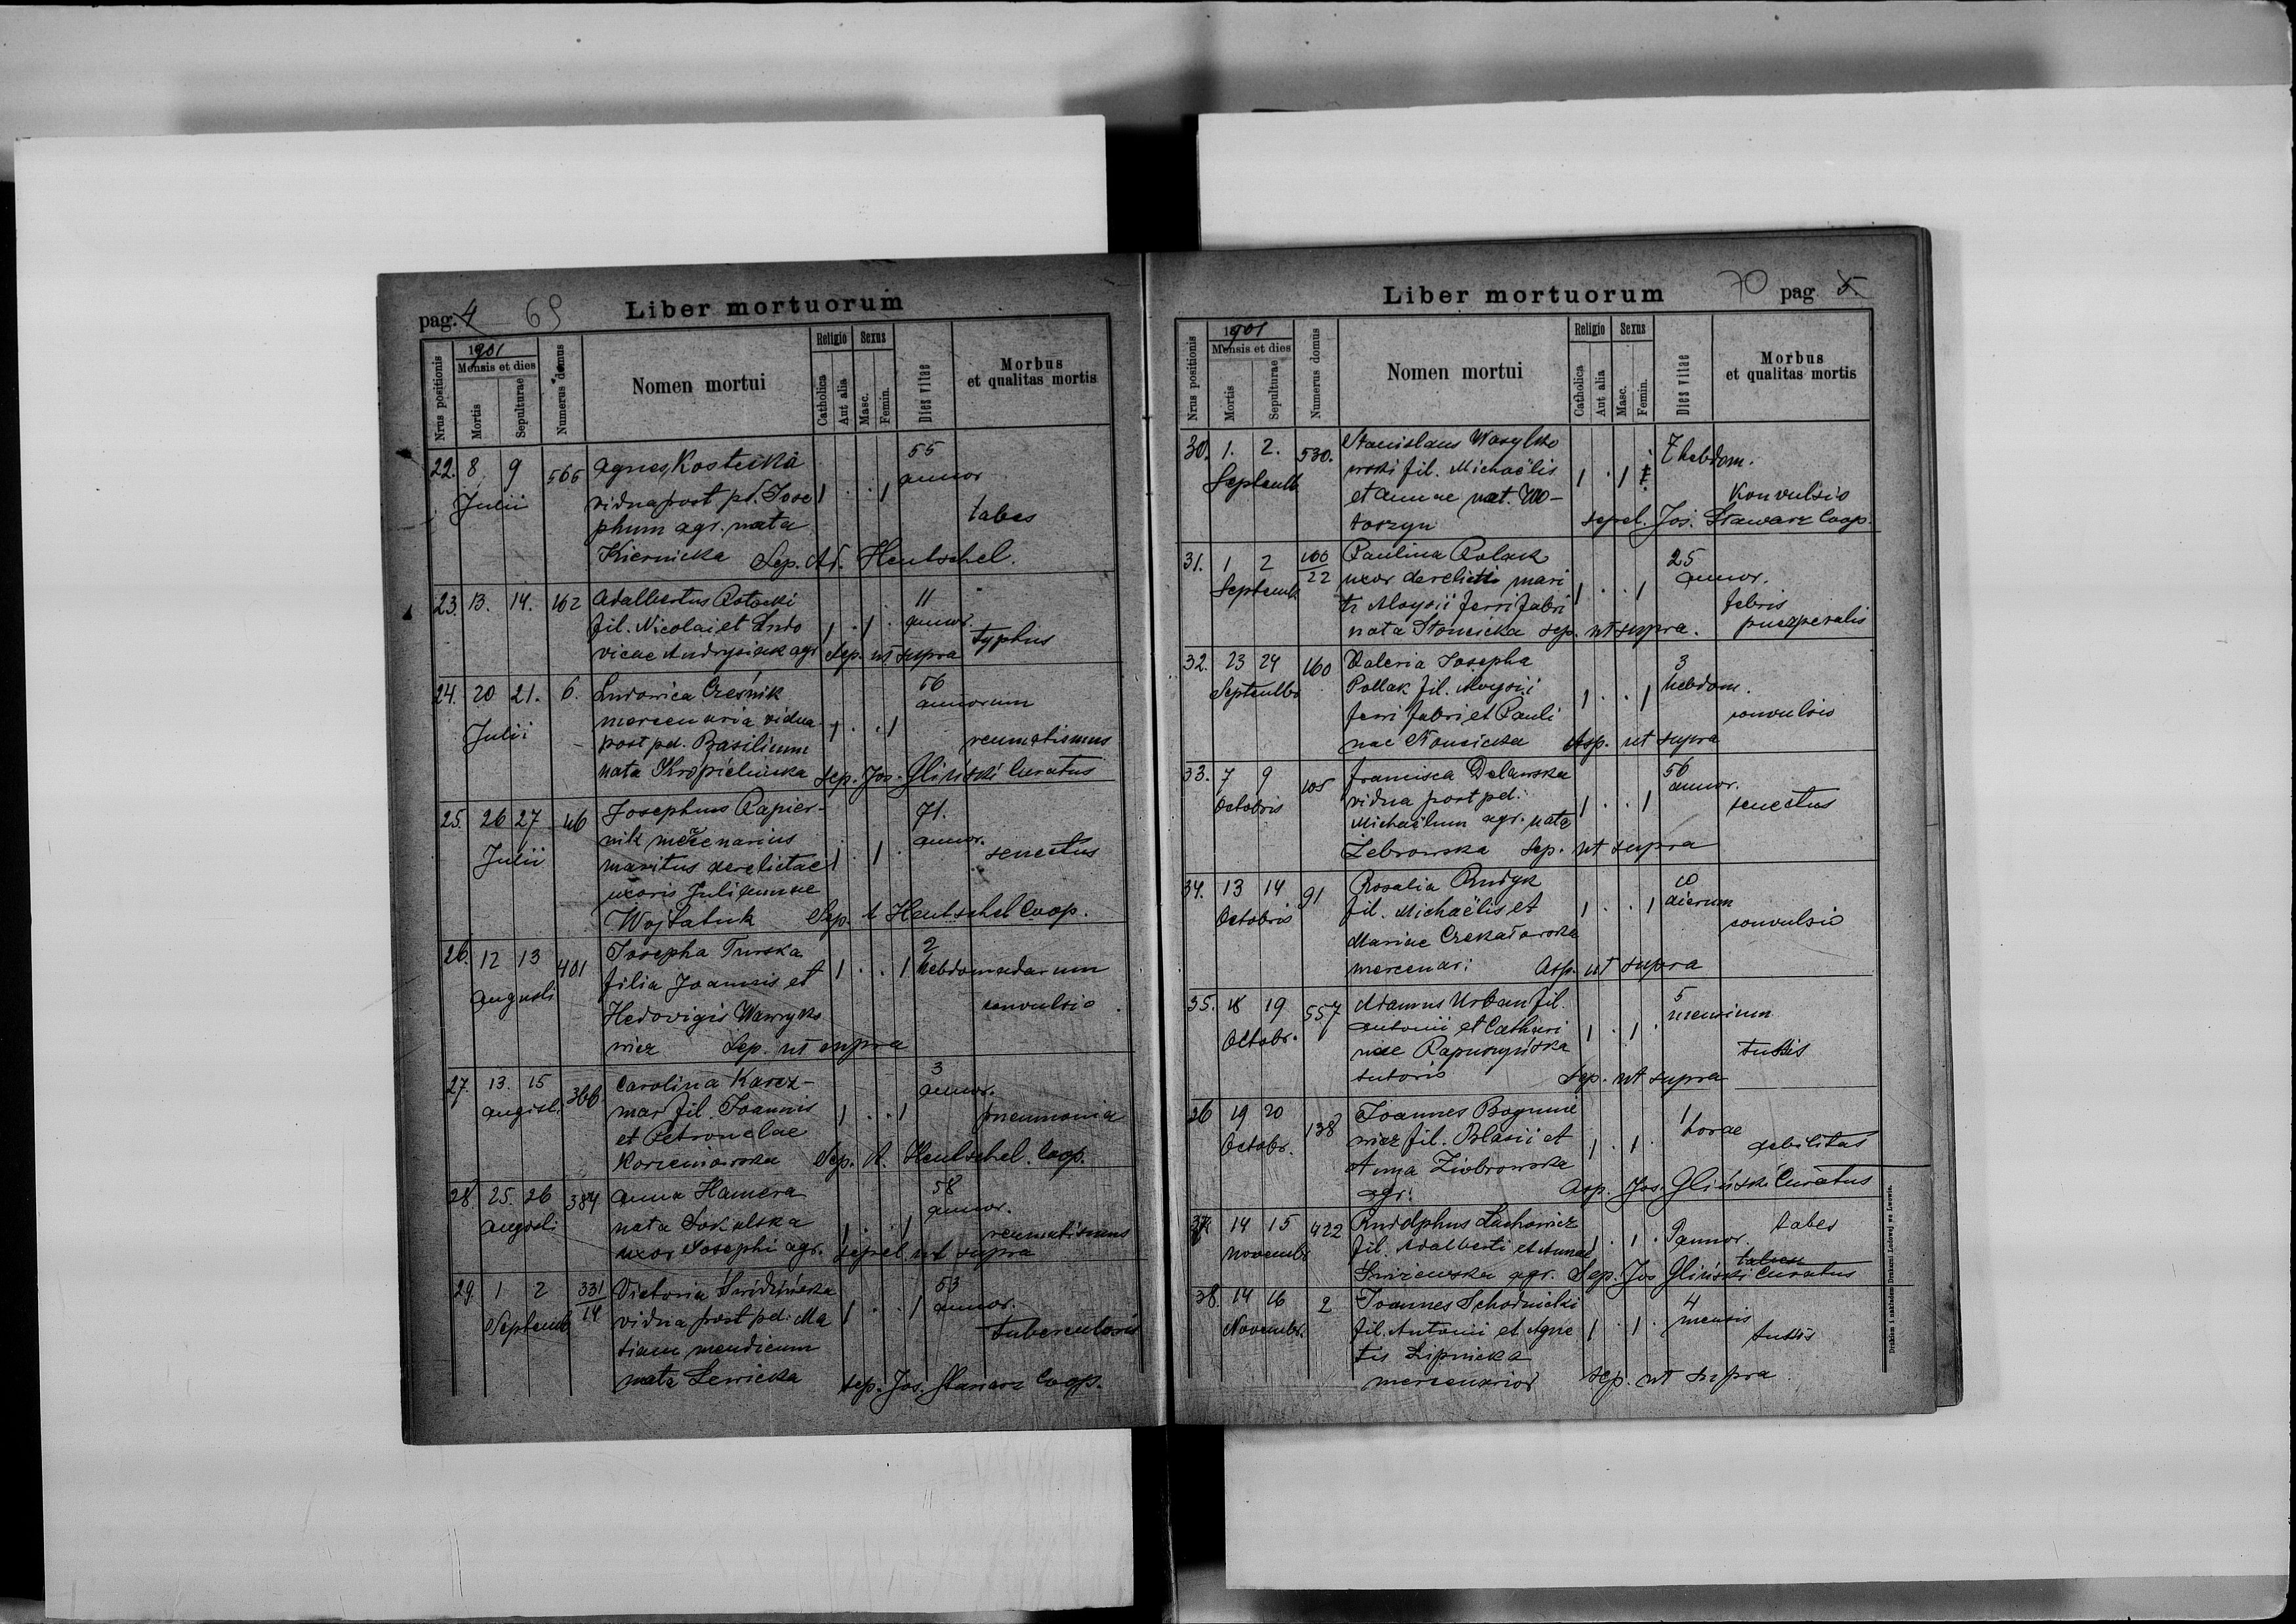 pag. 4 69 Liber mortuorum
Nrus positionis
1901
Mensis et dies
Mortis
Sepulturae
Numerus domus
Nomen mortui
Religio
Catholica
Aut alia
Sexus
Masc.
Femin.
Dies vitae
Morbus
et qualitas mortis
22. 8 9 565 Agnes Kostecka 55
Julii vidua post pd. Jose 1 . . 1 annor
phum agr. nata tabes
Kiernicka Sep. Ad. Hentschel.
23. 13. 14. 162 Adalbertus Potocki 11
fil. Nicolai et Ludo 1 . 1 . annor.
vicae Andrysiak agr Sep. ut supra typhus
24. 20 21. 6. Ludovica Cześnik 56
mercenaria vidua annorum
Julii post pd. Basilium 1 . . 1 reumatismus
nata Kropielnicka Sep. Jos. Gliński Curatus
25. 26 27 46 Josephus Papier- 71.
nik mercenarius annor.
Julii maritus derelictae 1 . 1 . senectus
uxoris Juliannae
Wojtatuk Sep. A Hentschel Coop.
26. 12 13 401 Josepha Turska 2
Augusti filia Joannis et 1 . . 1 hebdomadarum
Hedovigis Wawryko convulsio
wicz Sep. ut supra
27. 13. 15 366 Carolina Karcz- 3
August. mar fil. Joannis 1 . . 1 annor.
et Petronelae pneumonia
Korzeniowska Sep. A. Hentschel. Coop.
28. 25. 26 384 Anna Hamera 58
Augusti nata Sokulska 1 . . 1 annor.
uxor Josephi agr. sepel. ut supra reumatismus
29. 1 2 331/14 Victoria Świdzińska 53
Septemb vidua post pd. Ma 1 . . 1 annor.
tiam mendicum tuberculosis
nata Lewicka sep. Jos. Stawarz Coop.
Liber mortuorum 70 pag 5.
Nrus positionis
1901
Mensis et dies
Mortis
Sepulturae
Numerus domus
Nomen mortui
Religio
Catholica
Aut alia
Sexus
Masc.
Femin.
Dies vitae
Morbus
et qualitas mortis
30. 1. 2. 530. Stanislaus Wasylko
wski fil. Michaëlis 7 hebdom.
Septemb et Annae nat. Wo- 1 . 1 Konvulsio
toszyn sepel. Jos. Stawarz Coop.
31. 1 2 160/22 Paulina Polak 25
Septemb. uxor derelicti mari 1 . . 1 annor.
ti Aloysii ferri fabri febris
nata Słonicka sep. ut supra. puerperalis
32. 23 24 160 Valeria Josepha 3
Septembr Pollak fil. Aloysii 1 . . 1 hebdom.
ferri fabri et Pauli convulsio
nae Słonicka Sep. ut supra
33. 7 9 105 Francisca Delawska 56
Octobris vidua post pd. 1 . . 1 annor.
Michaëlum agr. nata senectus
Żebrowska Sep. ut supra
34. 13 14 91 Rosalia Rudyk 10
Octobris fil. Michaëlis et 1 . . 1 dierum
Mariae Czekałowska convulsio
mercenar: Sep. ut supra
35. 18 19 557 Adamus Urban fil. 5
Octobr. Antonii et Cathari 1 . 1 . mensium
nae Rapuszyńska tussis
sutoris Sep. ut supra
36 19 20 138 Joannes Bogunie 1
Octobr. wicz fil. Blasii et 1 . 1 . horae
Anna Ziobrowska debilitas
agr. Sep. Jos. Gliński Curatus
37 14 15 422 Rudolphus Lachowicz tabes
Novembr fil. Adalberti et Annae 1 . 1 . 9 annor.
Śniżewska agr. Sep. Jos Gliński Curatus
38. 14 16 2 Joannes Schodnicki 4
Novembr. fil. Antonii et Agne 1 . 1 . mensis
tis Lipnicka tussis
mercenarior sep. ut supra
Drukiem i nakładem Drukarni Ludowej we Lwowie.